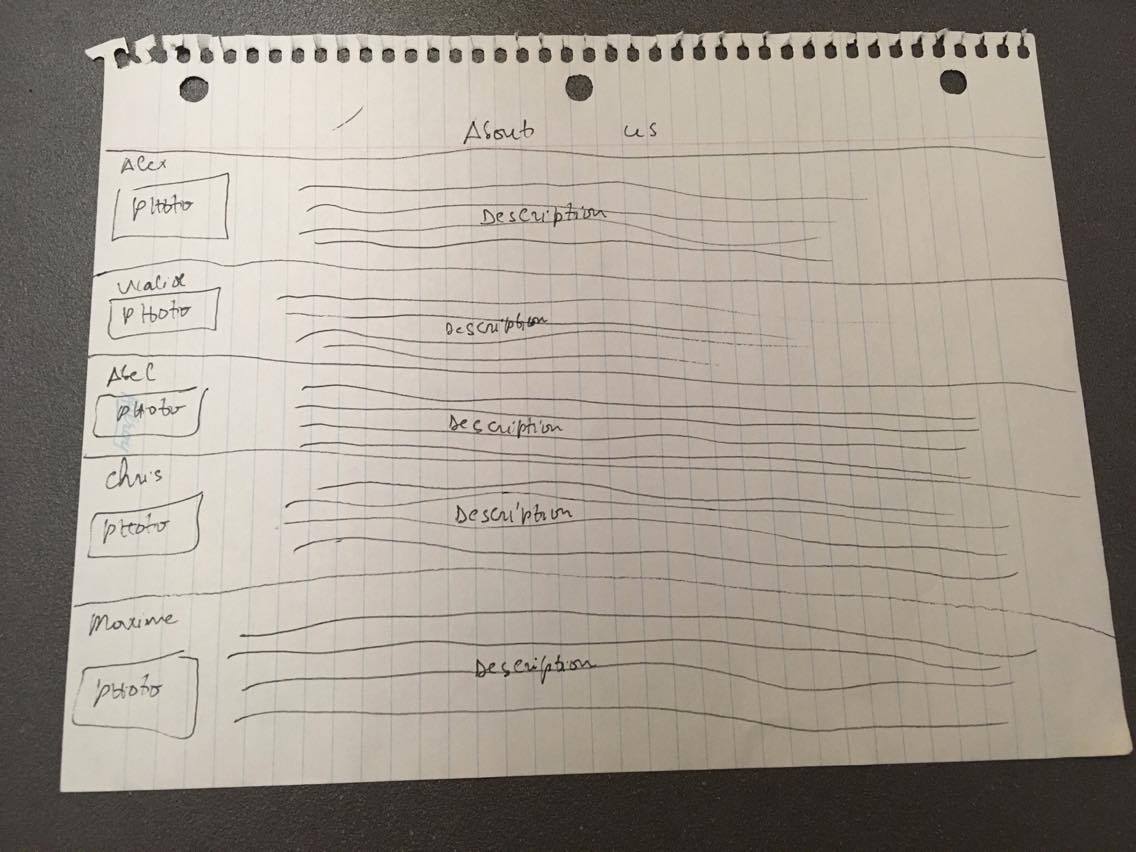 About us
Alex
PHoto
Description
Walid
PHoto
Description
Abel
PHoto
Description
Chris
PHoto
Description
Maxime
PHoto
Description